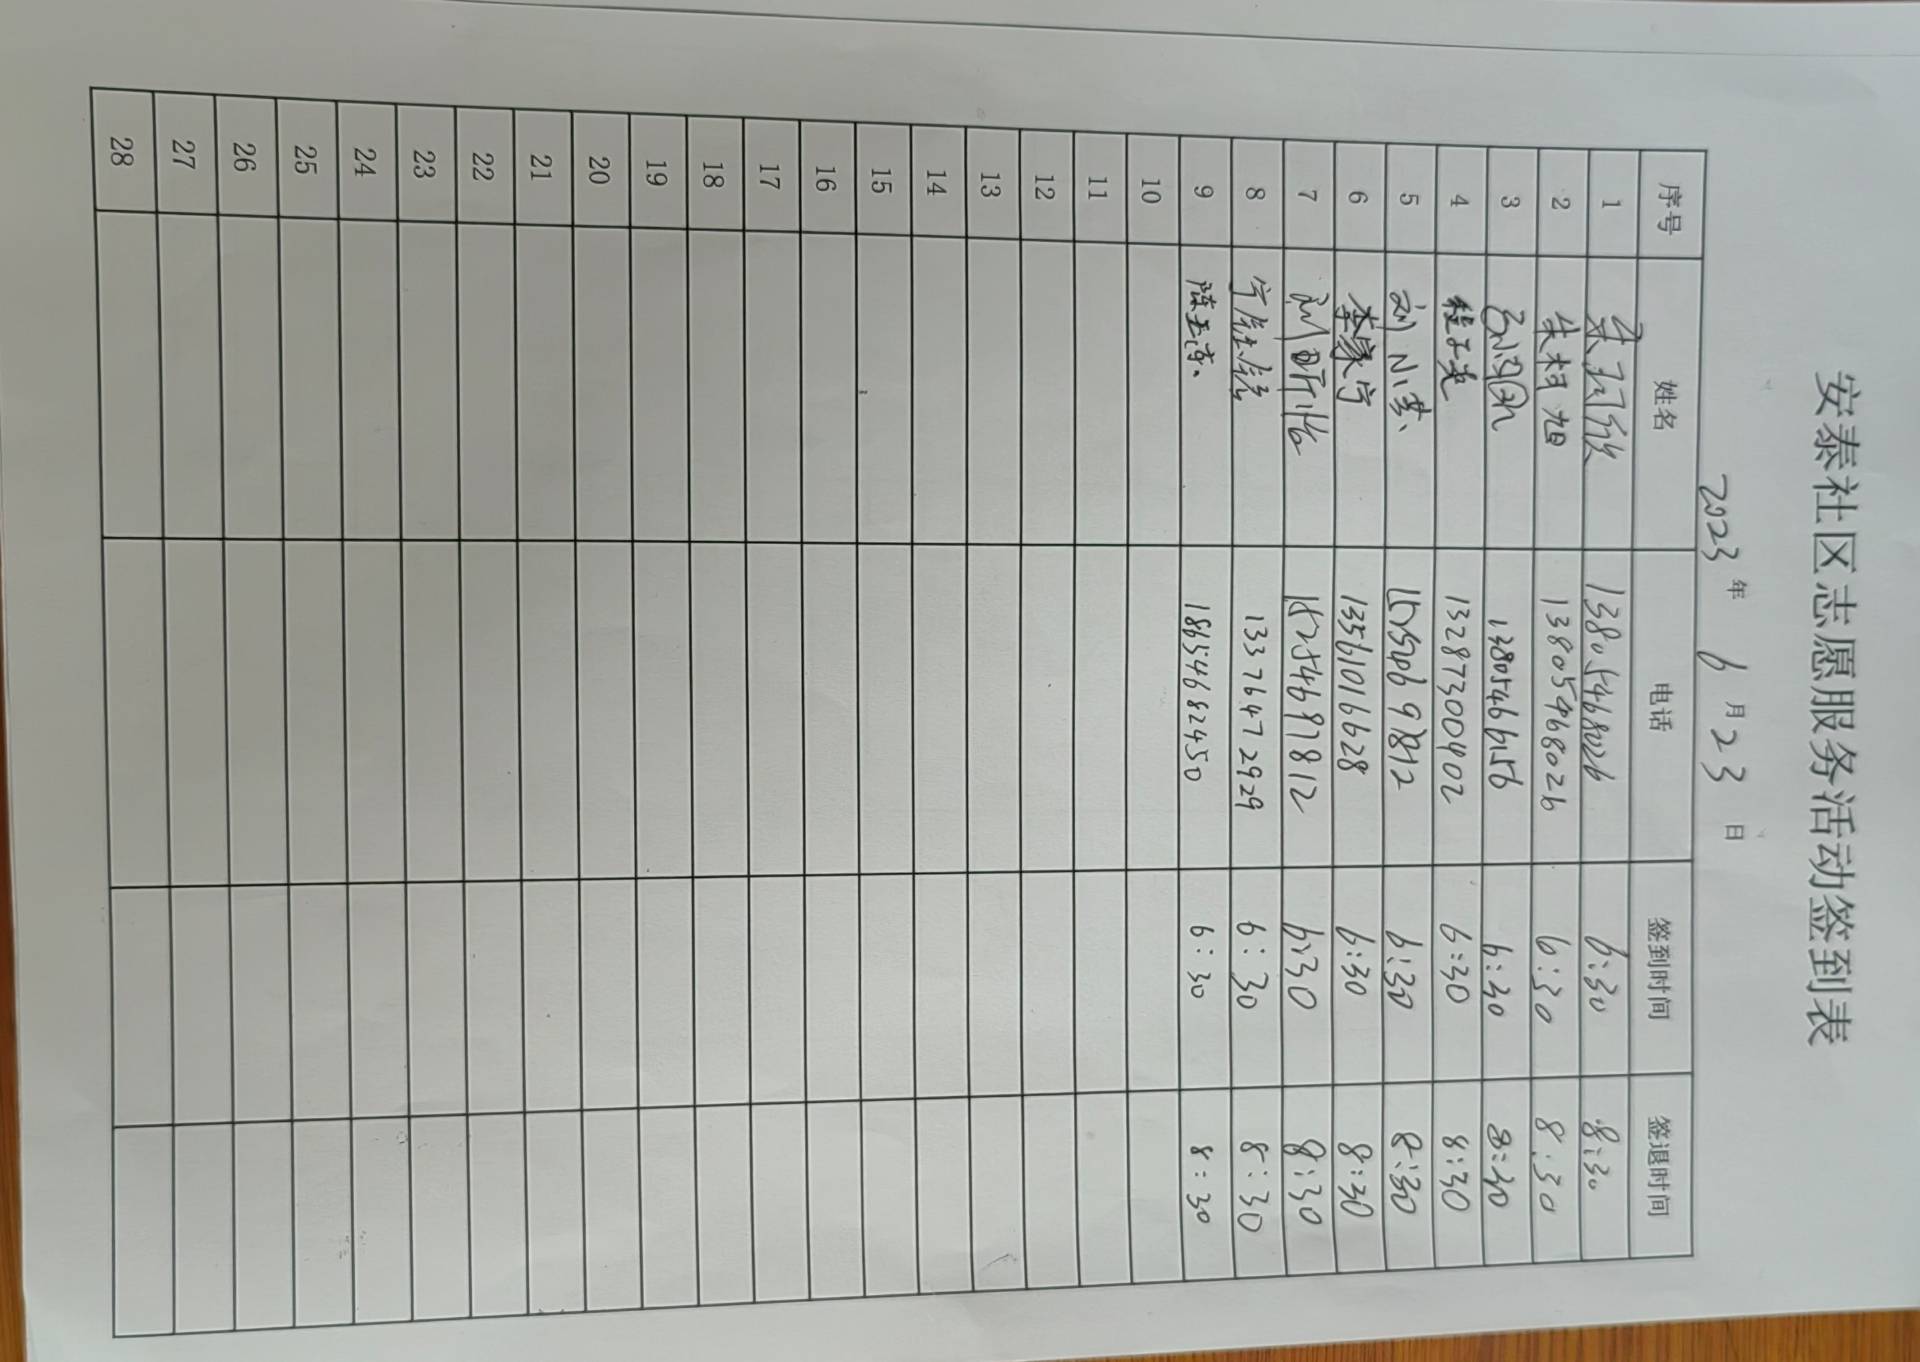 安泰社区志愿服务活动签到表
2023年 6月23日
序号 姓名 电话 签到时间 签退时间
1 朱珂欣 13805468026 6:30 8:30
2 朱柯旭 13805468026 6:30 8:30
3 13805466156 6:30 8:30
4 程子芙 13287300402 6:30 8:30
5 刘小溪 15550698812 6:30 8:30
6 李家宁 13561016628 6:30 8:30
7 刘昕怡 15254681812 6:30 8:30
8 13376472929 6:30 8:30
9 陈 18654682450 6:30 8:30
10
11
12
13
14
15
16
17
18
19
20
21
22
23
24
25
26
27
28